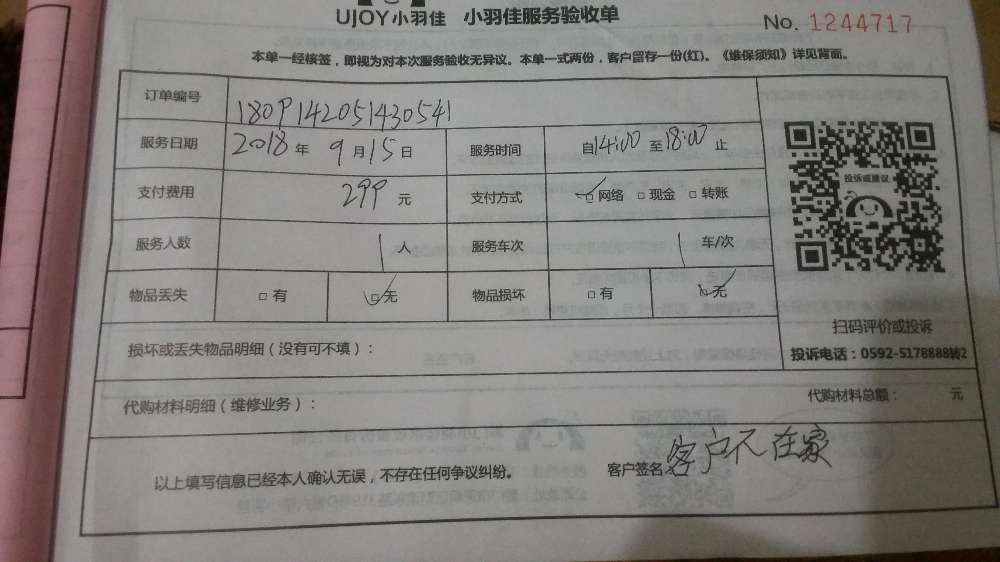 UJOY小羽佳 小羽佳服务验收单
No. 1244717
本单一经核签，即视为对本次服务验收无异议。本单一式两份，客户留存一份(红)。《维保须知》详见背面。
订单编号 1809142051430541
服务日期 2018年9月15日 服务时间 自14:00至18:00止
支付费用 299元 支付方式 ☑网络 □现金 □转账
投诉或建议
服务人数 1人 服务车次 1车/次
物品丢失 □有 ☑无 物品损坏 □有 ☑无
扫码评价或投诉
损坏或丢失物品明细（没有可不填）：
投诉电话：0592-5178888转2
代购材料明细（维修业务）： 代购材料总额： 元
以上填写信息已经本人确认无误，不存在任何争议纠纷。 客户签名：客户不在家